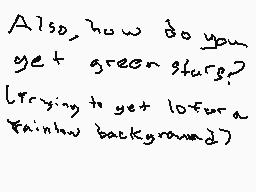 Also, how do you
get green stars?
(Trying to get 10 for a
rainbow background)